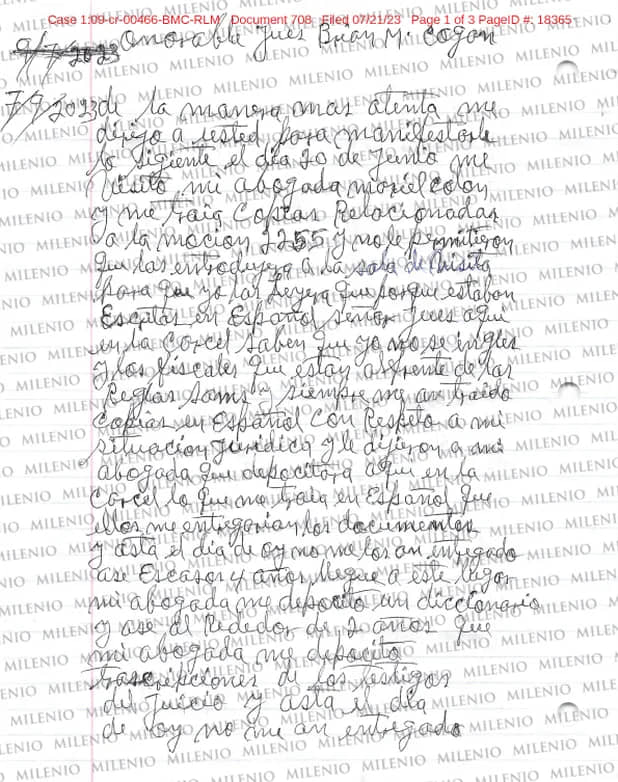 Case 1:09-cr-00466-BMC-RLM Document 708 Filed 07/21/23 Page 1 of 3 PageID #: 18365
Onorable Jues Brian M. Cogan
7/7/2023 de la manera mas atenta me
dirijo a usted para manifestarle
lo sigiente el dia 20 de Junio me
visito mi abogada mariel colon
y me traia Copias Relacionadas
a la mocion 2255 y no le permitieron
que las introdujera a la sala de Visita
para que yo las leyera que porque estaban
Escritas en Español señor Jues aqui
en la Carcel saben que yo no se ingles
y los fiscales que estan al frente de las
Reglas Sams y siempre me an traido
Copias en Español Con Respeto a mi
situacion Juridica y le dijeron a mi
abogada que depocitara aqui en la
Carcel lo que me traia en Español que
ellos me entregarian los documentos
y asta el dia de oy no me los an entregado
ase Escasos 4 años llegue a este lugar
mi abogada me deposito un diccionario
y ase al Rededor de 2 años que
mi abogada me depocito
trascripciones de los testigos
del juicio y asta el dia
de oy no me an entregado
MILENIO